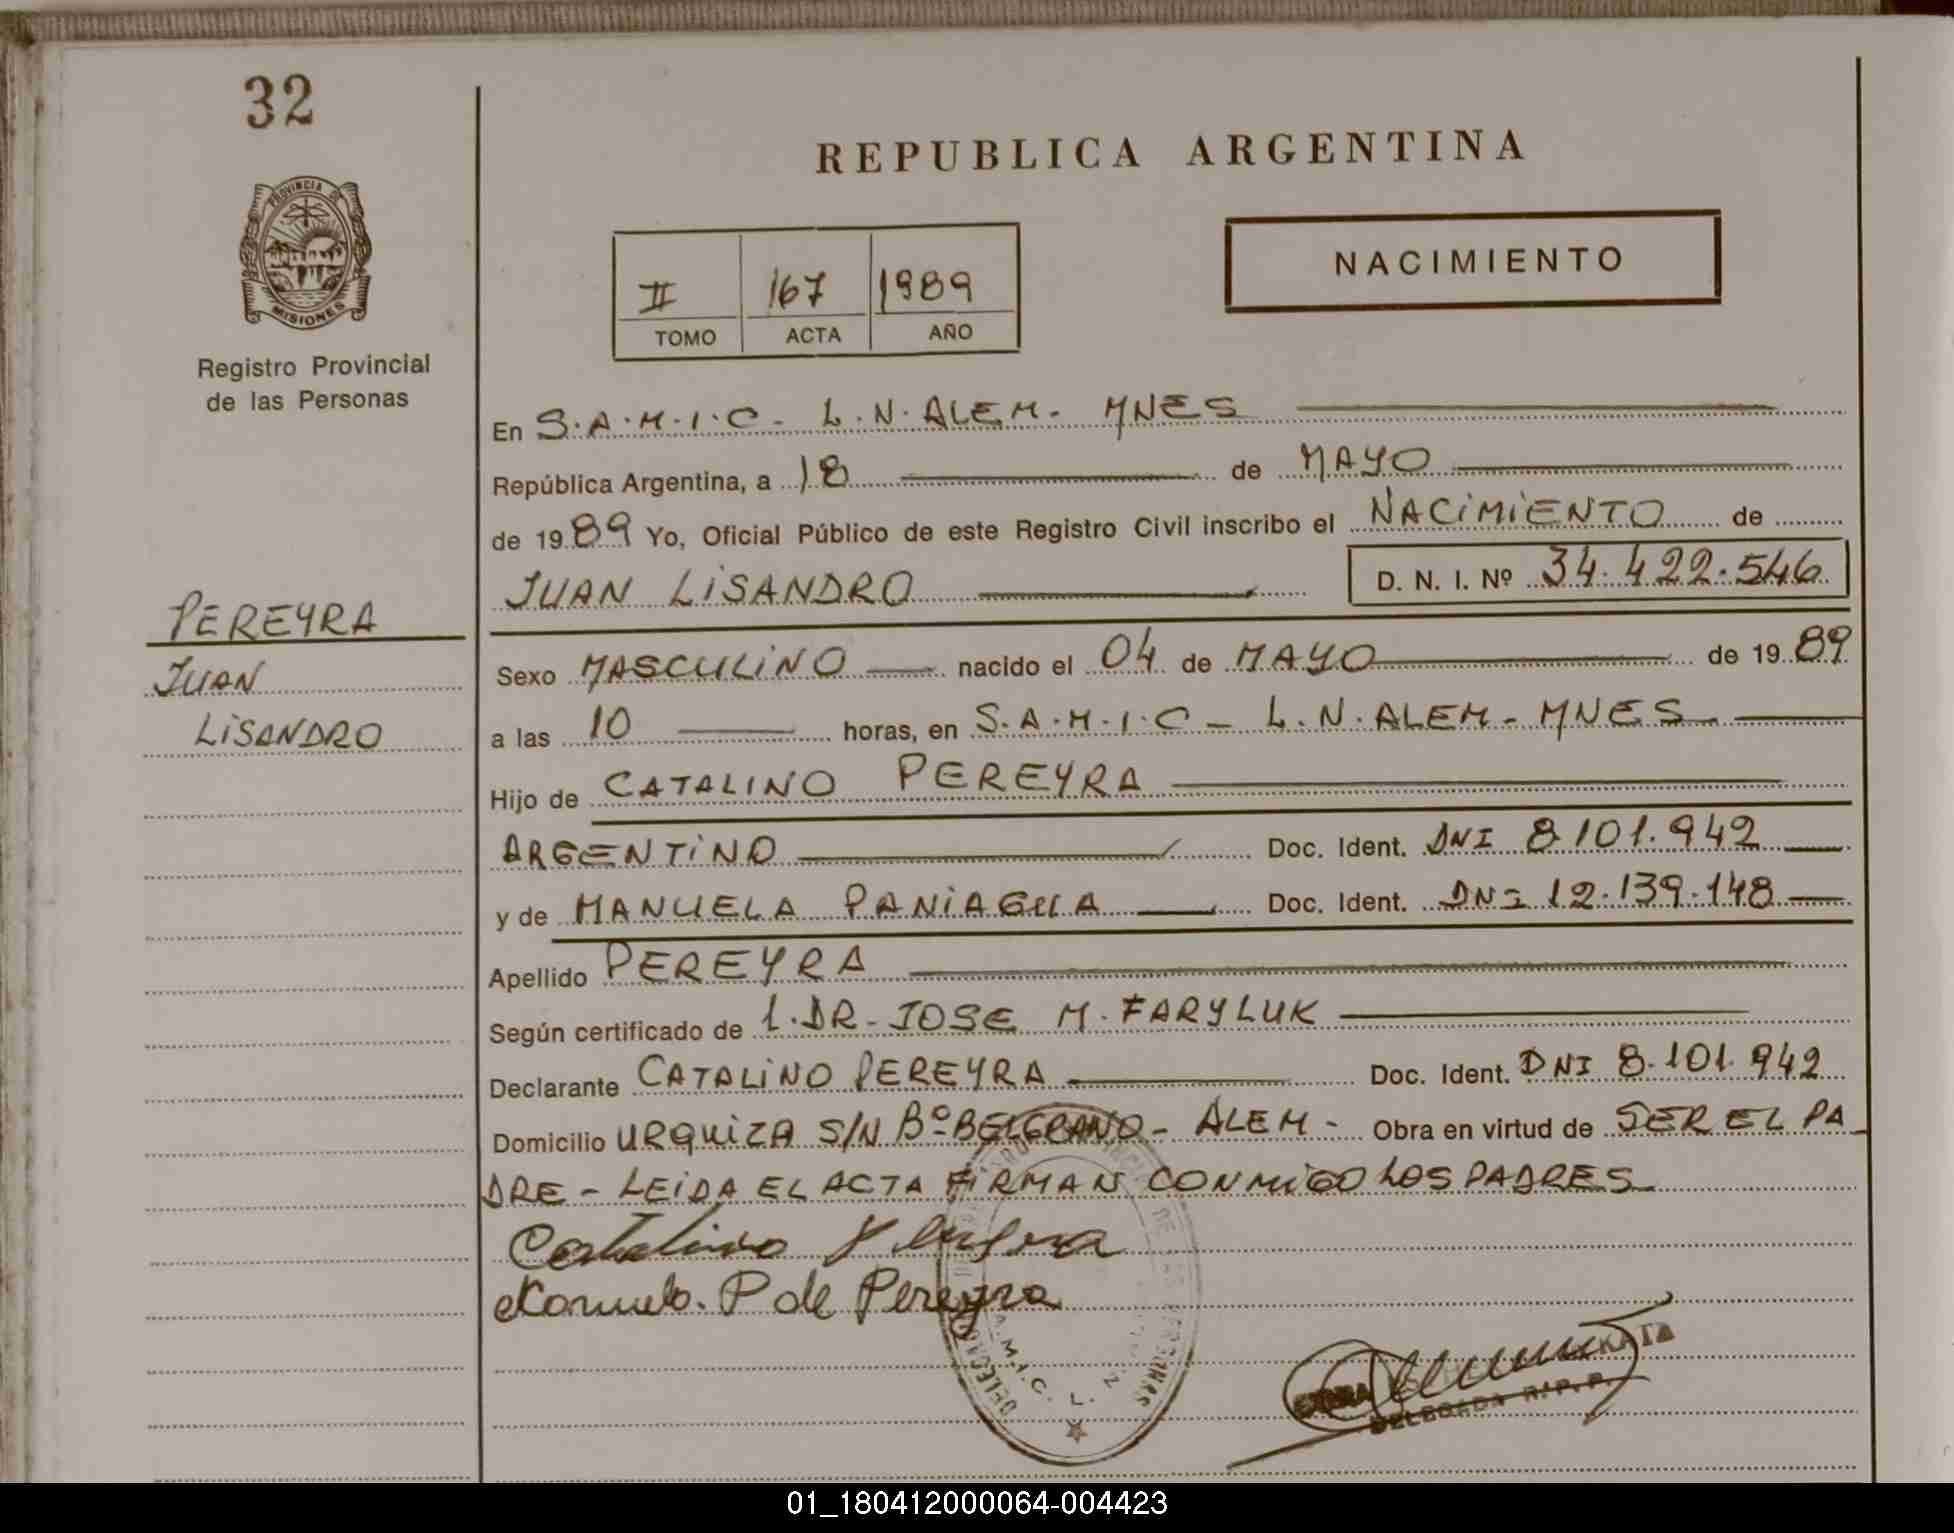 32
PROVINCIA DE
MISIONES
Registro Provincial
de las Personas
PEREYRA
JUAN
LISANDRO
REPUBLICA ARGENTINA
II 167 1989
TOMO ACTA AÑO
NACIMIENTO
En S.A.M.I.C - L.N. ALEM - MNES
República Argentina, a 18 de MAYO
de 1989 Yo, Oficial Público de este Registro Civil inscribo el NACIMIENTO de
JUAN LISANDRO D. N. I. Nº 34.422.546
Sexo MASCULINO nacido el 04 de MAYO de 1989
a las 10 horas, en S.A.M.I.C - L.N. ALEM - MNES
Hijo de CATALINO PEREYRA
ARGENTINO Doc. Ident. DNI 8.101.942
y de MANUELA PANIAGUA Doc. Ident. DNI 12.139.148
Apellido PEREYRA
Según certificado de 1. DR - JOSE M. FARYLUK
Declarante CATALINO PEREYRA Doc. Ident. DNI 8.101.942
Domicilio URQUIZA S/N Bº BELGRANO - ALEM - Obra en virtud de SER EL PA
DRE - LEIDA EL ACTA FIRMAN CONMIGO LOS PADRES
Catalino Pereyra
Manuela. P de Pereyra
DELEGADA R.P.P.
01_180412000064-004423